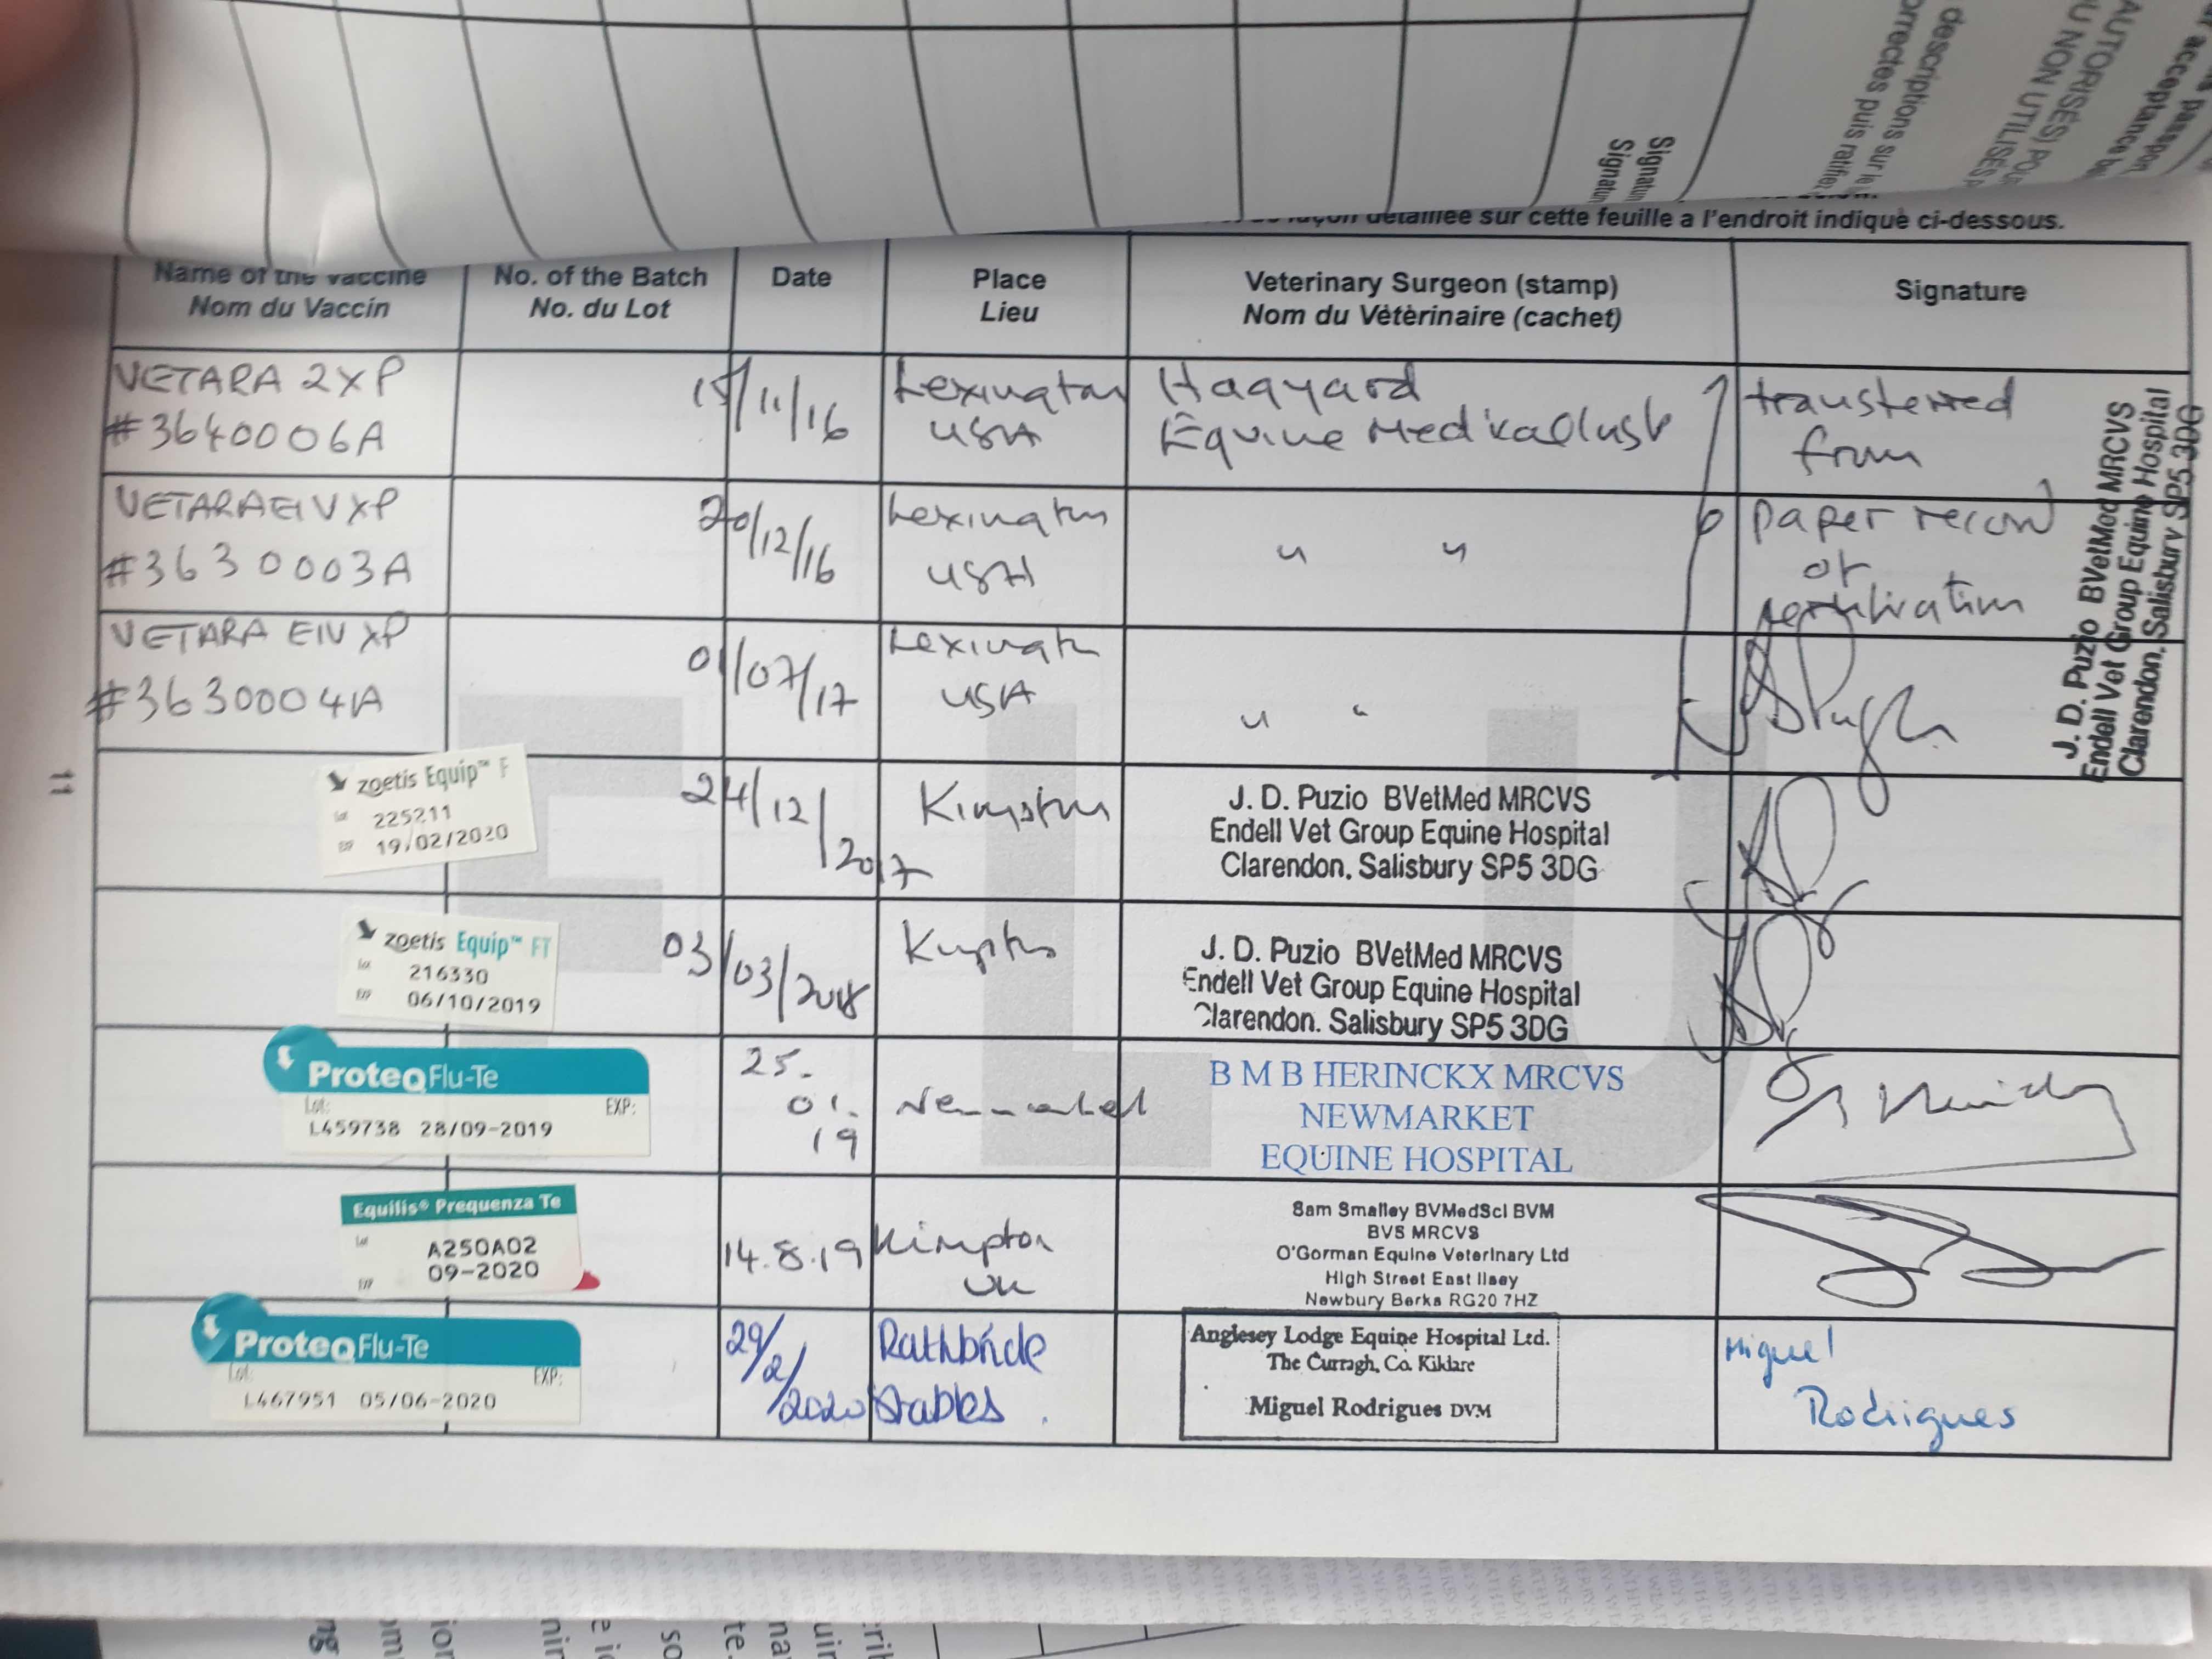 descriptions sur le
orrectes puis ratifie
AUTORISÉS) POU
U NON UTILISÉS P
passpor
acceptance be
Signatur
Signatur
détaillée sur cette feuille a l'endroit indiquè ci-dessous.
Name of the Vaccine
Nom du Vaccin
No. of the Batch
No. du Lot
Date
Place
Lieu
Veterinary Surgeon (stamp)
Nom du Vètèrinaire (cachet)
Signature
VETARA 2XP
#3640006A
15/11/16
Lexington
USA
Hagyard
Equine Medical
transferred
from
VETARA EIV XP
#3630003A
20/12/16
Lexington
USA
" "
paper record
of
VETARA EIV XP
#3630004A
01/07/17
Lexingtn
USA
" "
J. D. Puzio BVetMed MRCVS
Endell Vet Group Equine Hospital
Clarendon, Salisbury SP5 3DG
11
FLU
zoetis Equip™ F
Lot 225211
EXP 19/02/2020
24/12/2017
Kimpton
J. D. Puzio BVetMed MRCVS
Endell Vet Group Equine Hospital
Clarendon. Salisbury SP5 3DG
zoetis Equip™ FT
Lot 216330
EXP 06/10/2019
03/03/2018
Kimpton
J. D. Puzio BVetMed MRCVS
Endell Vet Group Equine Hospital
Clarendon. Salisbury SP5 3DG
ProteqFlu-Te
Lot: EXP:
L459738 28/09-2019
25.
01.
19
Newmarket
B M B HERINCKX MRCVS
NEWMARKET
EQUINE HOSPITAL
Equilis® Prequenza Te
Lot A250A02
EXP 09-2020
14.8.19
Kimpton
UK
Sam Smalley BVMedSci BVM
BVS MRCVS
O'Gorman Equine Veterinary Ltd
High Street East Ilsey
Newbury Berks RG20 7HZ
ProteqFlu-Te
Lot: EXP:
L467951 05/06-2020
29/2/2020
Rathbride
Stables
Anglesey Lodge Equine Hospital Ltd.
The Curragh, Co. Kildare
Miguel Rodrigues DVM
Miguel
Rodrigues